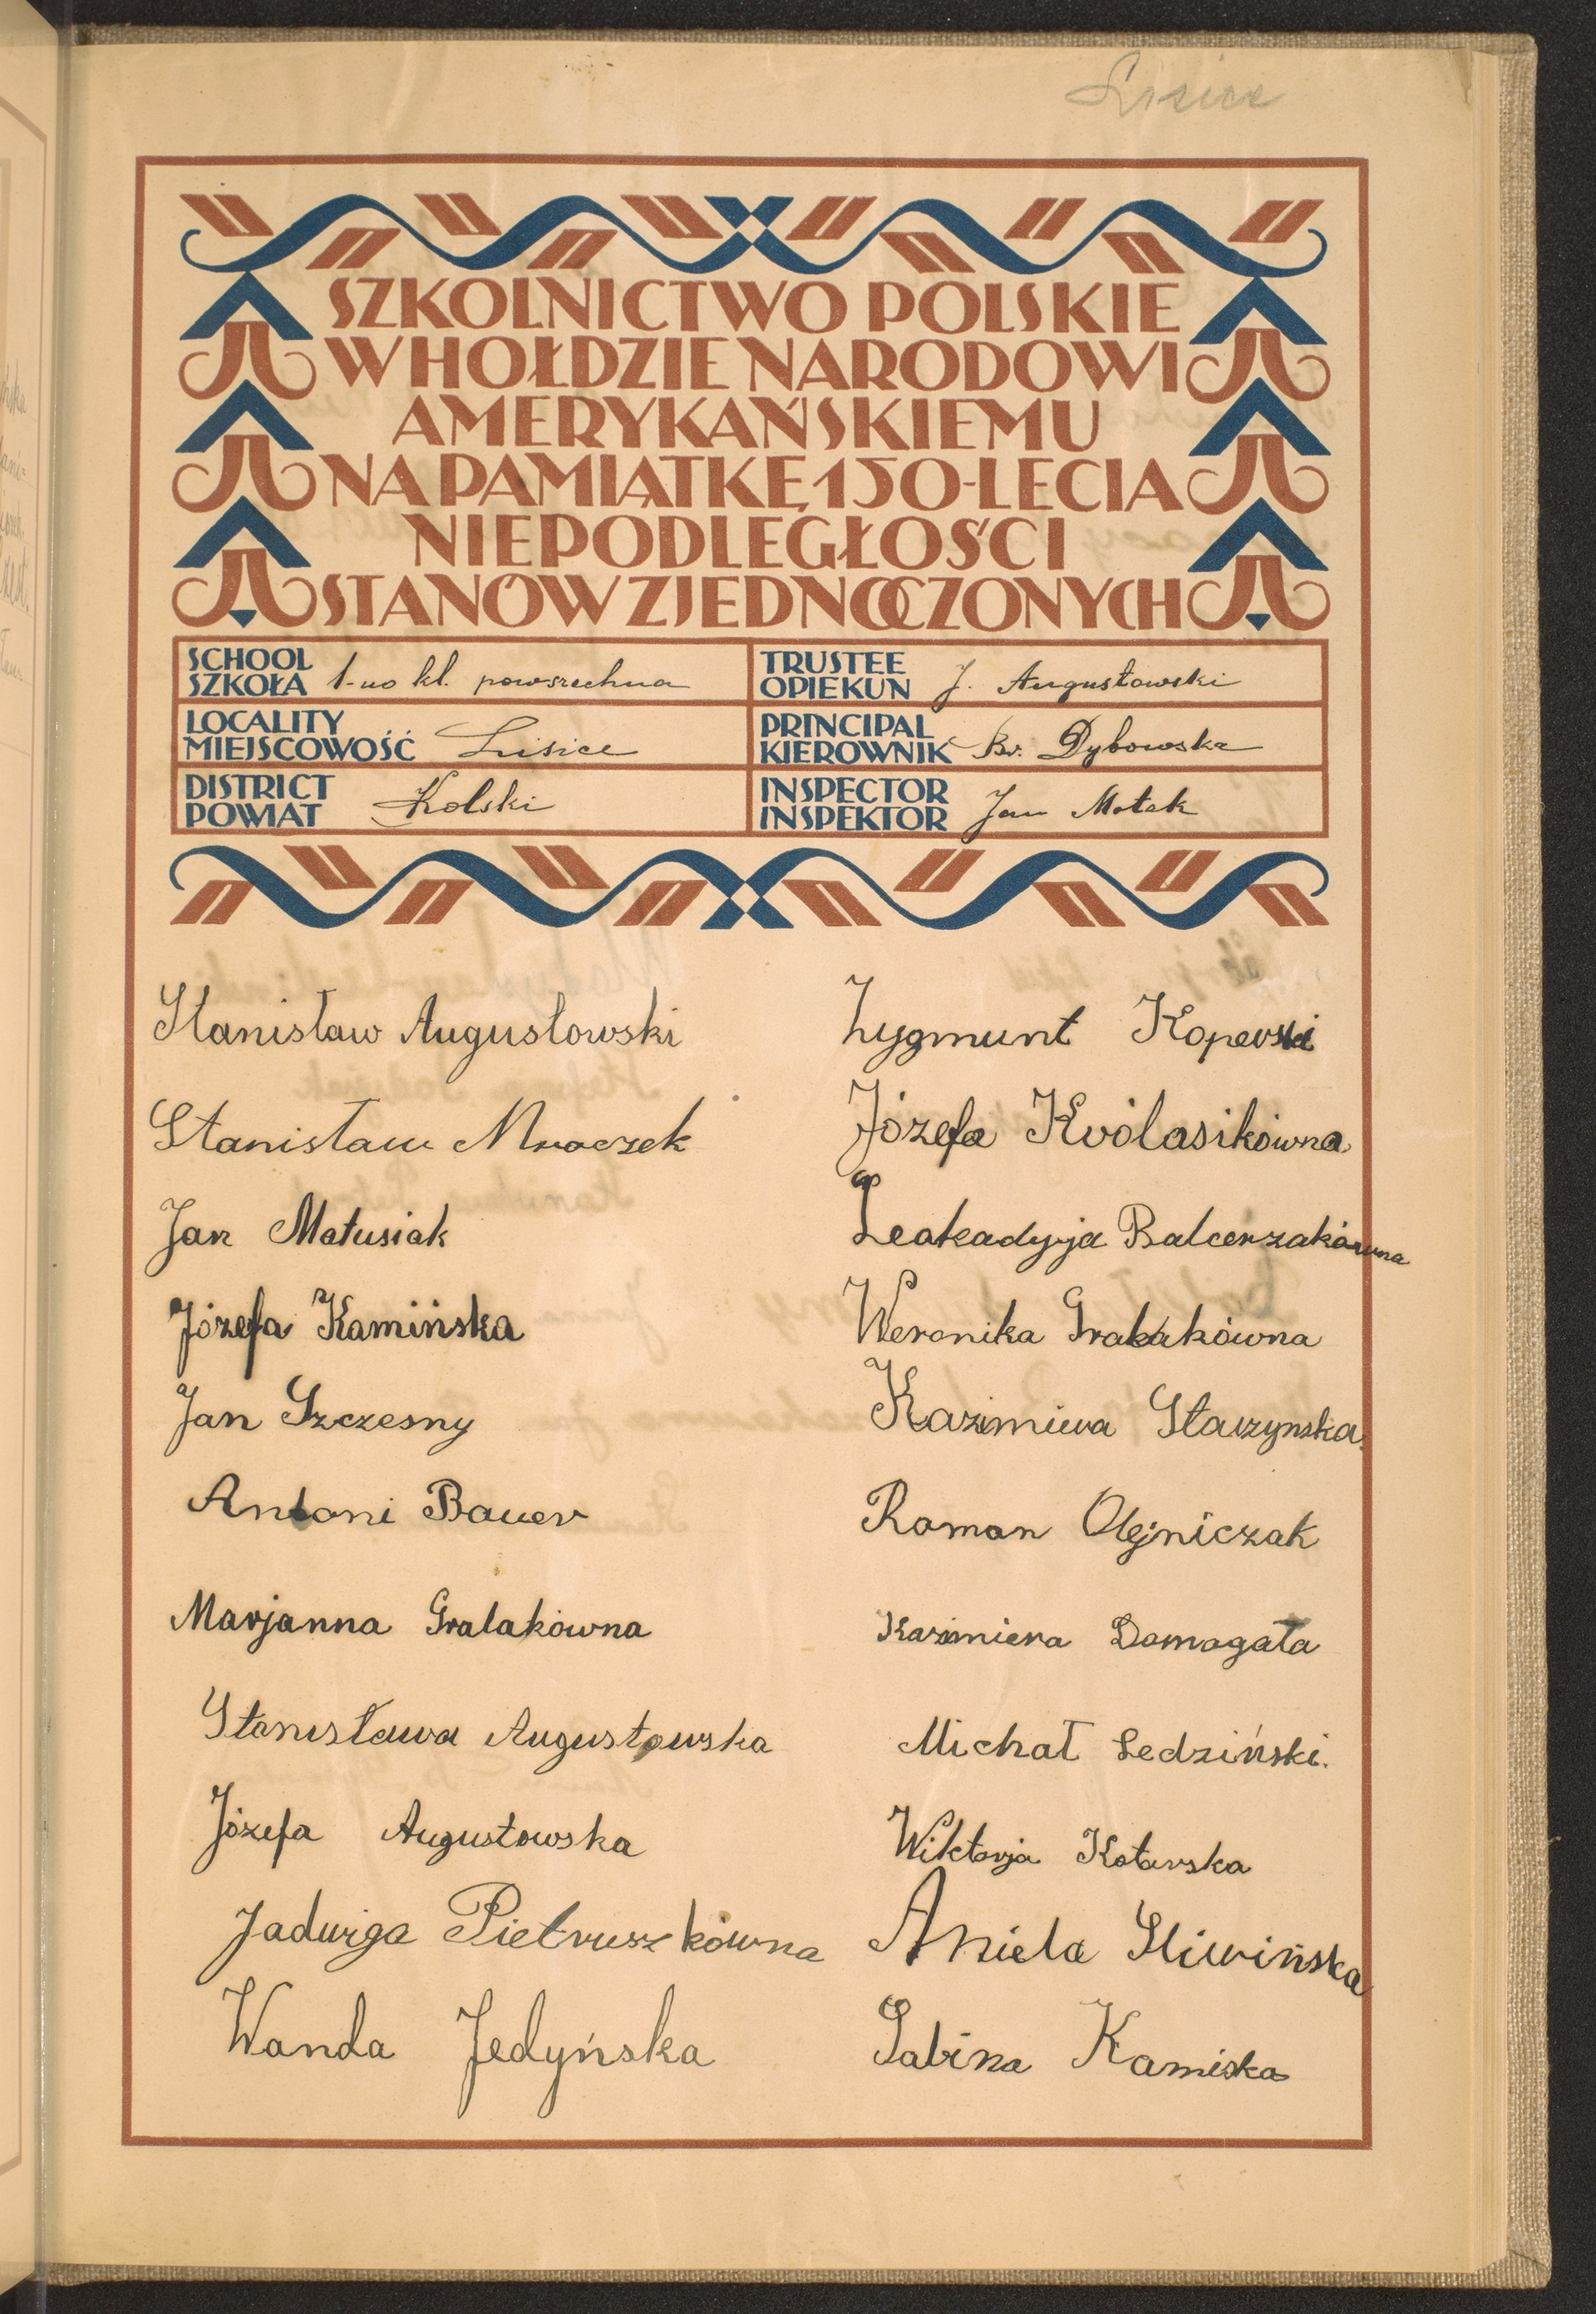 Lisice
SZKOLNICTWO POLSKIE
W HOŁDZIE NARODOWI
AMERYKAŃSKIEMU
NA PAMIĄTKĘ 150-LECIA
NIEPODLEGŁOŚCI
STANÓW ZJEDNOCZONYCH
SCHOOL
SZKOŁA 1-no kl. powszechna
TRUSTEE
OPIEKUN J. Augustowski
LOCALITY
MIEJSCOWOŚĆ Lisice
PRINCIPAL
KIEROWNIK Br. Dybowska
DISTRICT
POWIAT Kolski
INSPECTOR
INSPEKTOR Jan Motek
Stanisław Augustowski
Stanisław Mroczek
Jan Matusiak
Józefa Kamińska
Jan Szczesny
Antoni Bauer
Marjanna Gralakówna
Stanisława Augustowska
Józefa Augustowska
Jadwiga Pietruszkówna
Wanda Jedyńska
Zygmunt Koperski
Józefa Królasikówna
Leokadyja Balcerzakówna
Weronika Gralakówna
Kazimiera Starzynska
Roman Olejniczak
Kazimiera Domagała
Michał Ledziński.
Wiktorja Kotarska
Aniela Sliwińska
Sabina Kamiska